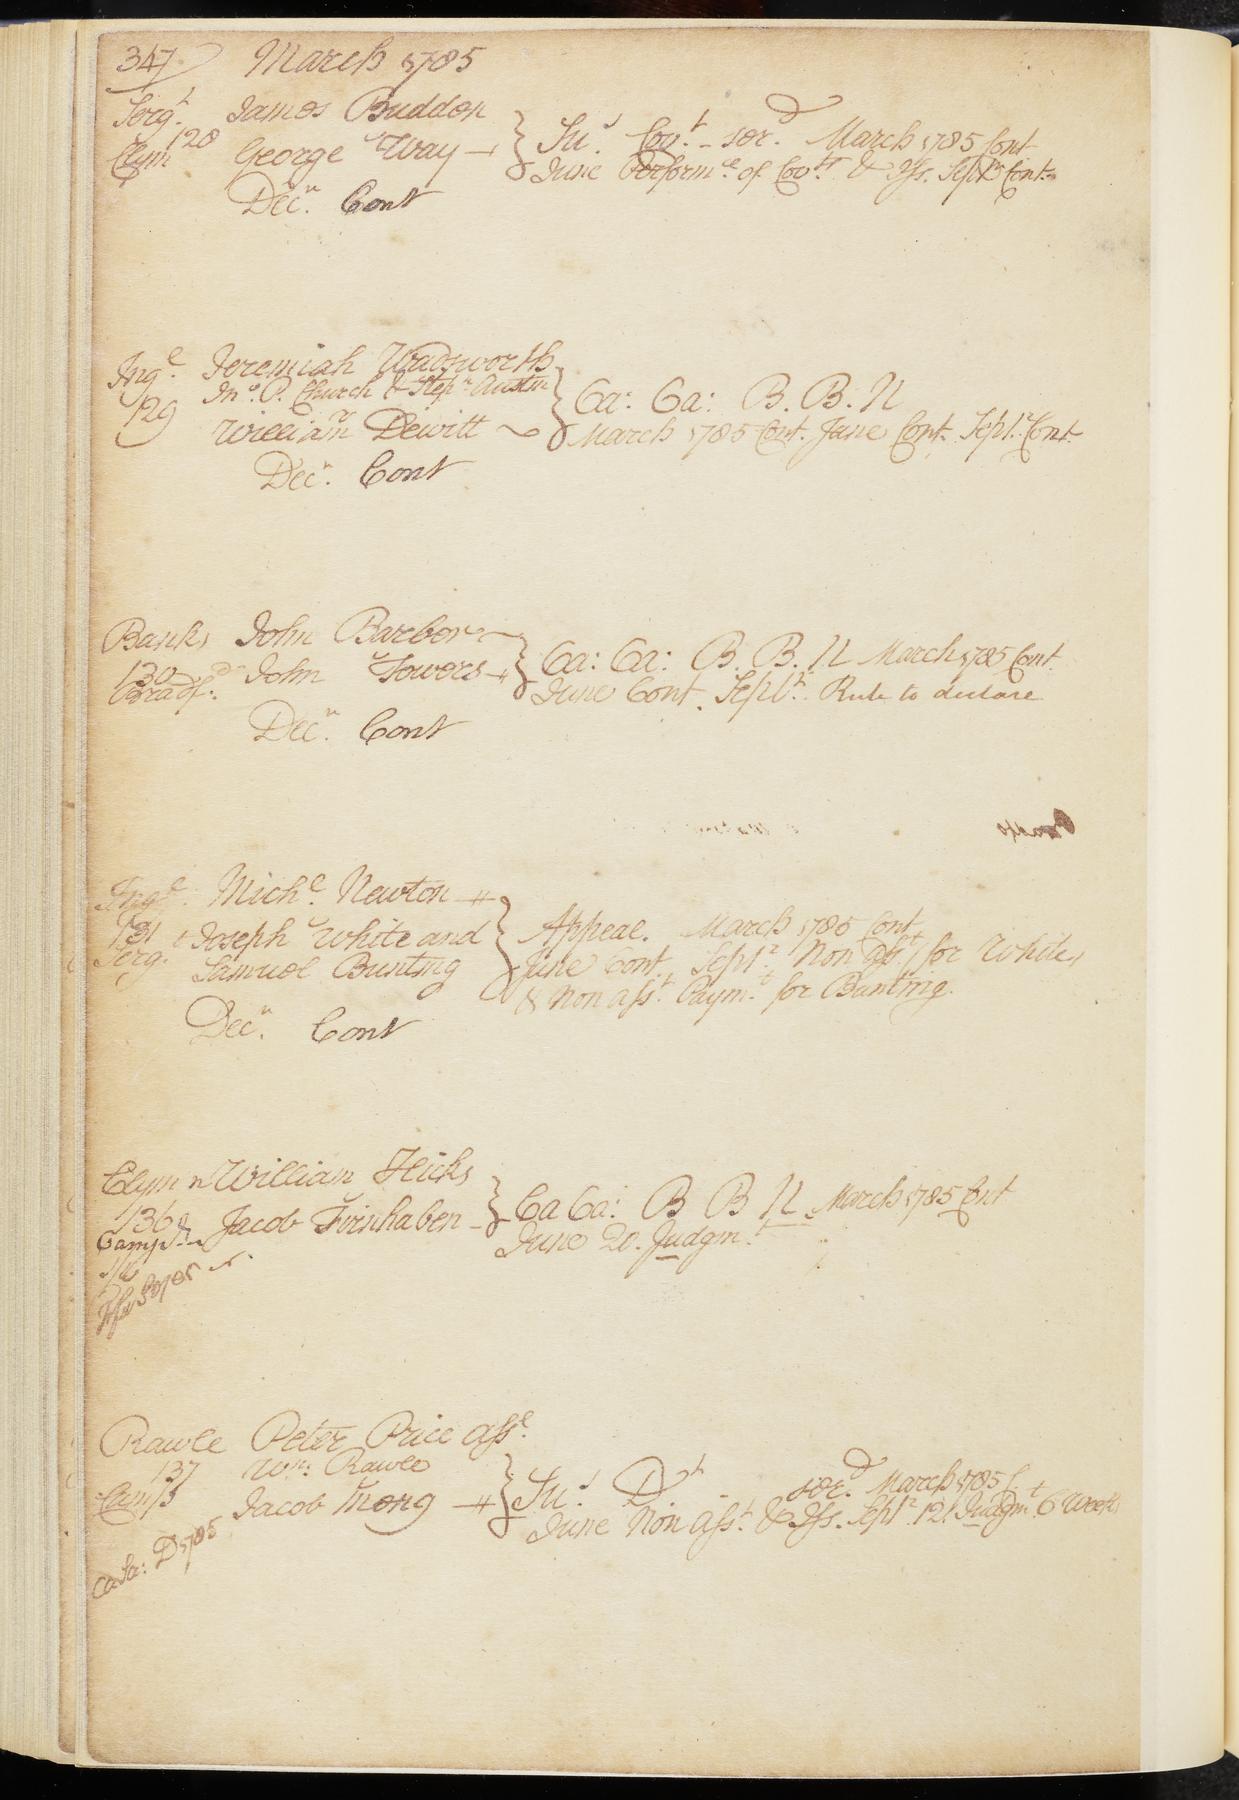 347 March 1785
Sergt. James Budden
128
Clym George Way
Su.s Covt. - ser.d March 1785 Cont
June Performce. of Covts. & Iss. Septr. Cont.
Decr. Cont
Ingl. Jeremiah Wadsworth
Jno. P. Church & Stepn. Austin
129
William Dewitt
Ca: Ca: B. B. N
March 1785 Cont. June Cont. Septr. Cont.
Decr. Cont
Banks John Barber
130 John Towers
Bradf.d
Ca: Ca: B. B. N March 1785 Cont.
June Cont. Septr. Rule to declare
Decr. Cont
Ingl. Michl. Newton
131 Joseph White and
Serg. Samuel Bunting
Appeal. March 1785 Cont
June Cont. Septr. Non Asst. for White,
& Non asst. Paymt. for Bunting.
Decr. Cont
Clym William Hicks
136 Jacob Fornhaben
Camp
Ca Ca: B B N March 1785 Cont
June 20. Judgmt.
Rawle Peter Price asse.
137 Wm. Rawle
Jacob Meng
Su.s Dt - ser.d March 1785
June Non asst. & Iss. Septr. 12. Judgmt. 6 Weeks
Ca Sa: D 1785